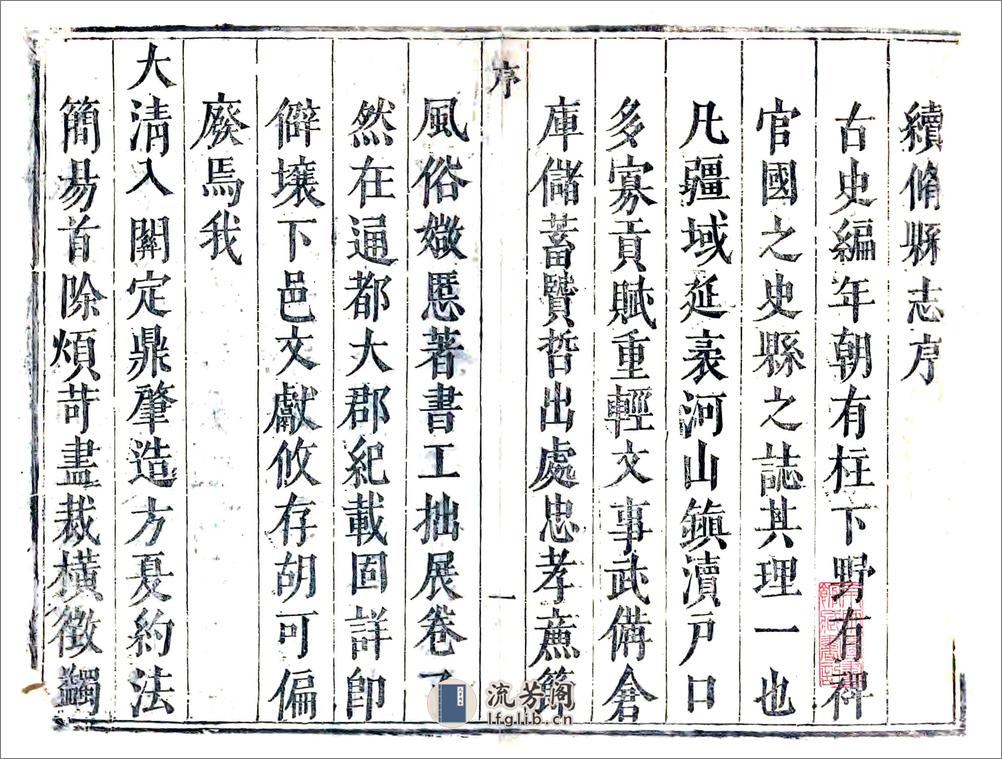 續脩縣志序
古史編年朝有柱下野有稗
官國之史縣之誌其理一也
凡疆域延袤河山鎮瀆戸口
多寡貢賦重輕文事武備倉
庫儲蓄賢哲出處忠孝廉節
序
一
風俗媺慝著書工拙展卷了
然在通都大郡紀載固詳卽
僻壤下邑文獻攸存胡可偏
廢焉我
大清入關定鼎肇造方夏約法
簡易首除煩苛盡裁橫徵蠲
流芳阁
lfglib.cn